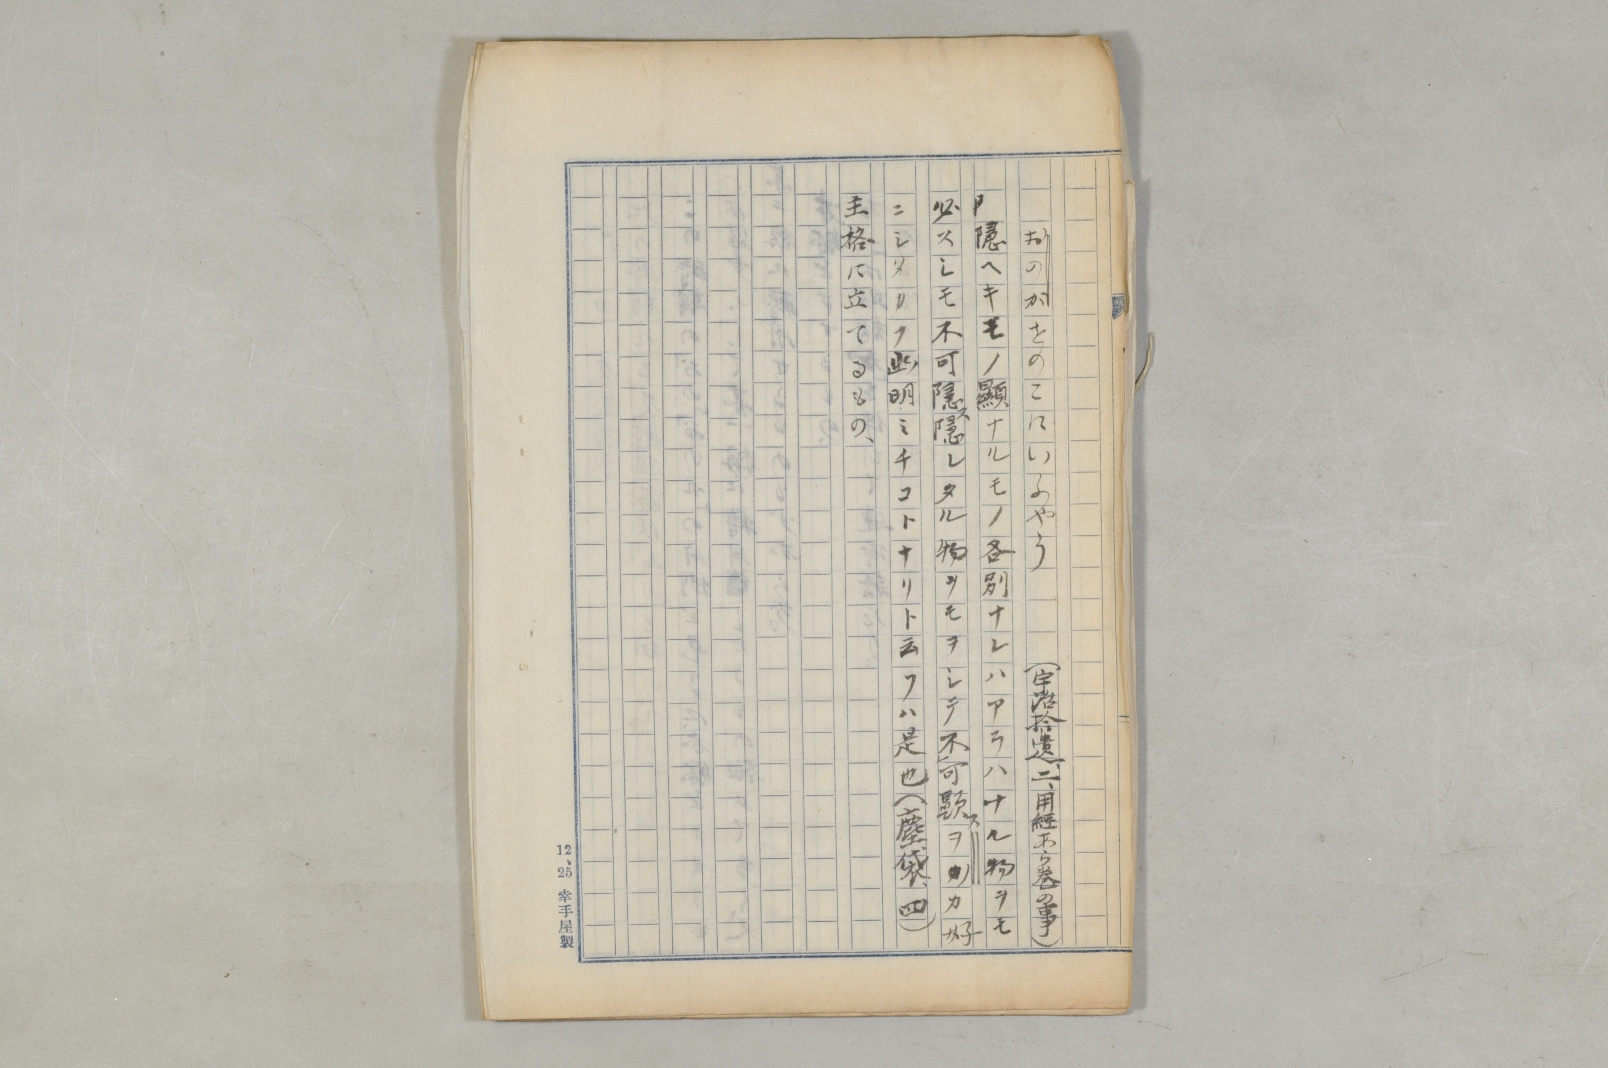 おのがをのこにいふやう　　（宇治拾遺、二、用経あら巻の事）
隠ヘキモノ顯ナルモノ各別ナレハアラハナル物ヲモ
必スシモ不可隠ス隠レタル物ヲモヲシテ不可顕スヲノカ好
ニシタカフ此明ミチコトナリト云フハ是也（塵袋、四）
主格に立てるもの、
12、25 幸手屋製